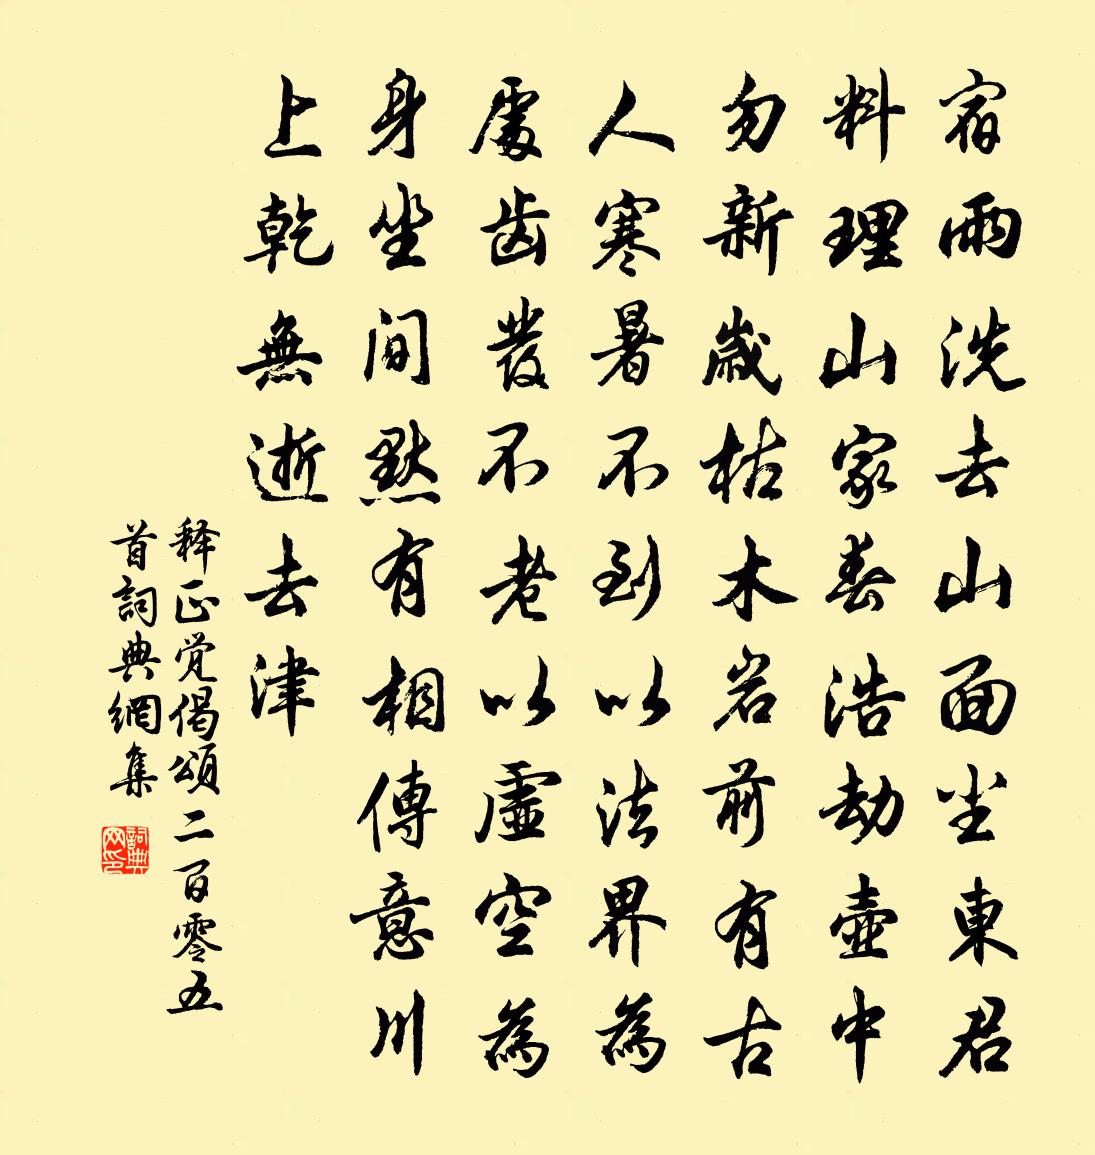 宿雨洗去山面尘東君
料理山家春浩劫壺中
勿新歲枯木岩前有古
人寒暑不到以法界為
處齿發不老以虛空為
身坐间黙有相傳意川
上乾無逝去津
释正觉偈頌二百零五
首詞典網集
詞典网印